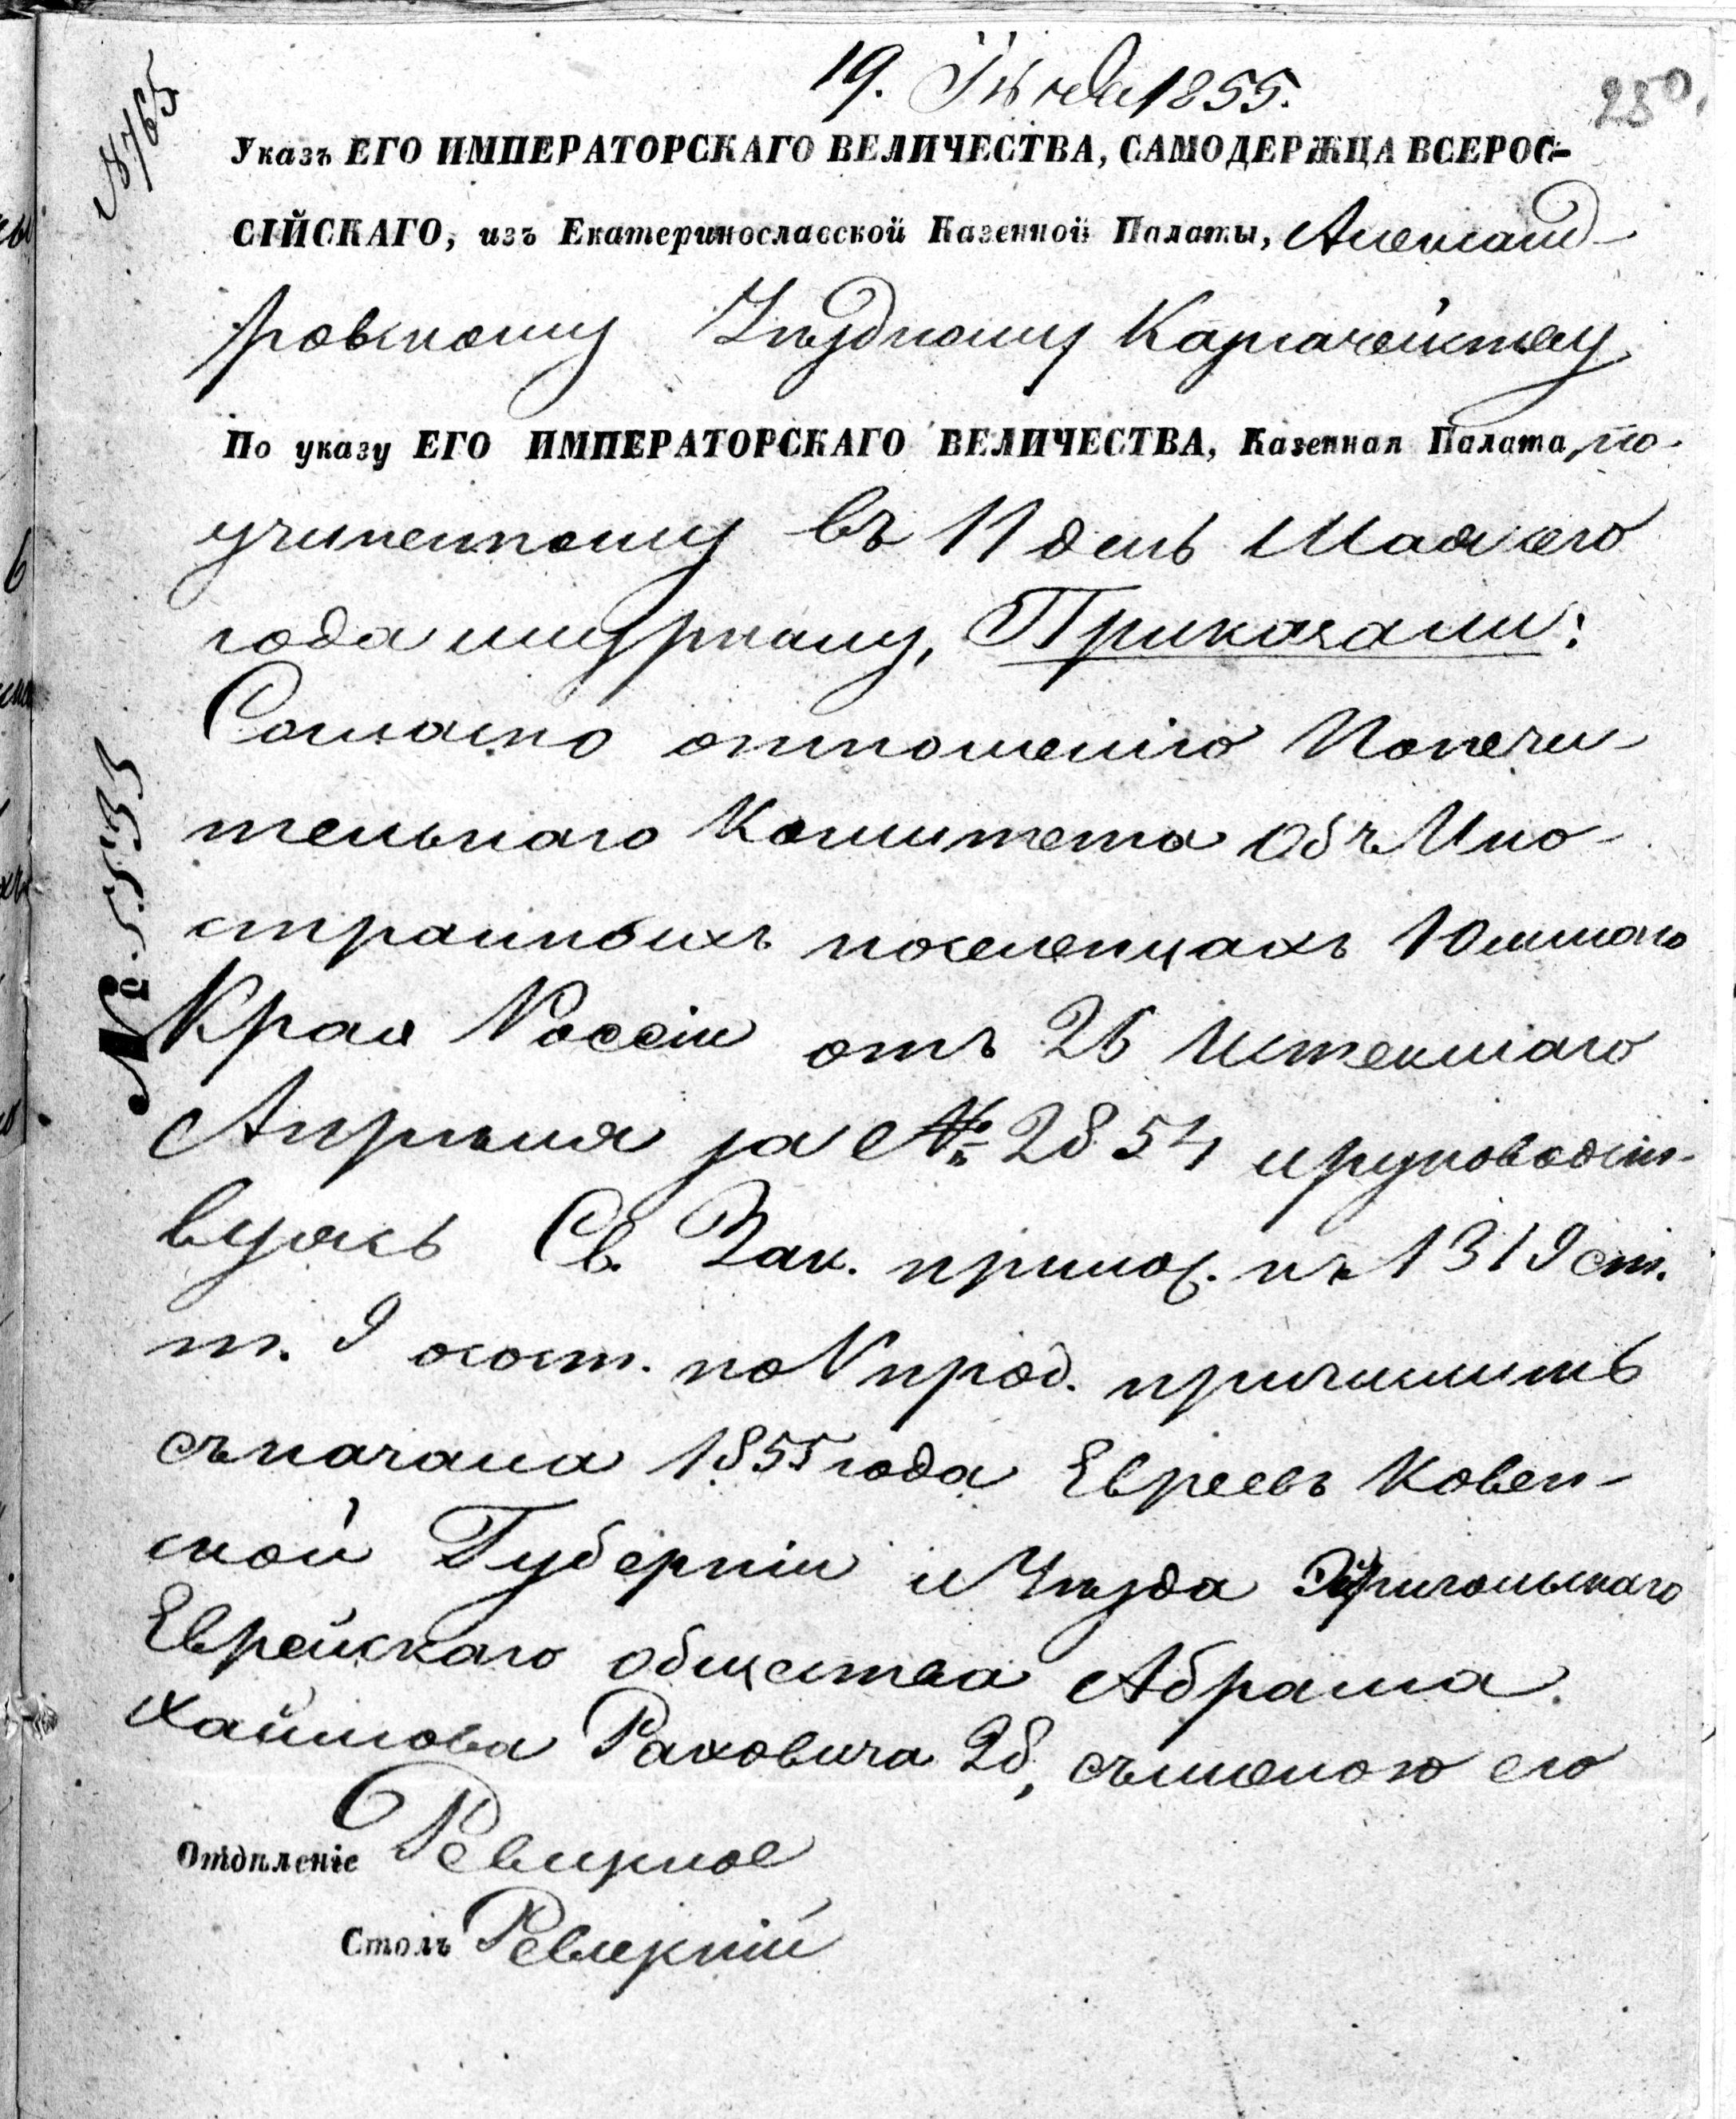 19. Іюня 1855.
280.
№765
Указъ ЕГО ИМПЕРАТОРСКАГО ВЕЛИЧЕСТВА, САМОДЕРЖЦА ВСЕРОС-
СІЙСКАГО, изъ Екатеринославской Казенной Палаты, Александ-
ровскому Уѣздному Казначейству
По указу ЕГО ИМПЕРАТОРСКАГО ВЕЛИЧЕСТВА, Казенная Палата, по
учиненному въ 11 день Мая сего
года журналу, Приказали:
Согласно отношенію Попечи-
тельнаго Комитета объ Ино-
странныхъ поселенцахъ Южнаго
Края Россіи отъ 26 истекшаго
Апрѣля за № 2854 и руководст-
вуясь Св. Зак. прилож. къ 1319 ст.
т. 9 сост. по V прод. причислить
съ начала 1855 года Евреевъ Ковен-
ской Губерніи и Уѣзда Эйрагольскаго
Еврейскаго общества Абрама
Хаимова Раховича 28, съ женою его
№ 5535
Отдѣленіе Ревизкое
Столъ Ревизкій